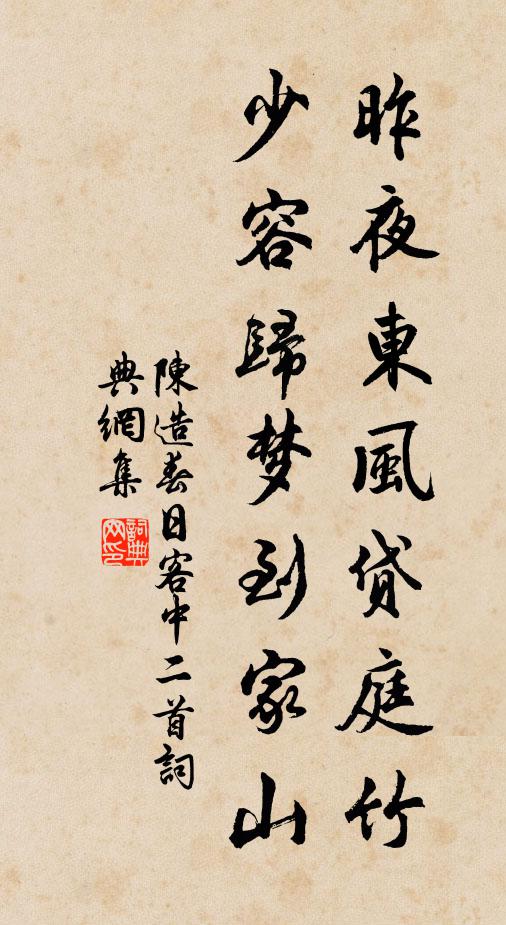 昨夜東風貸庭竹
少容歸梦到家山
陳造春日客中二首詞
典網集
詞典網印